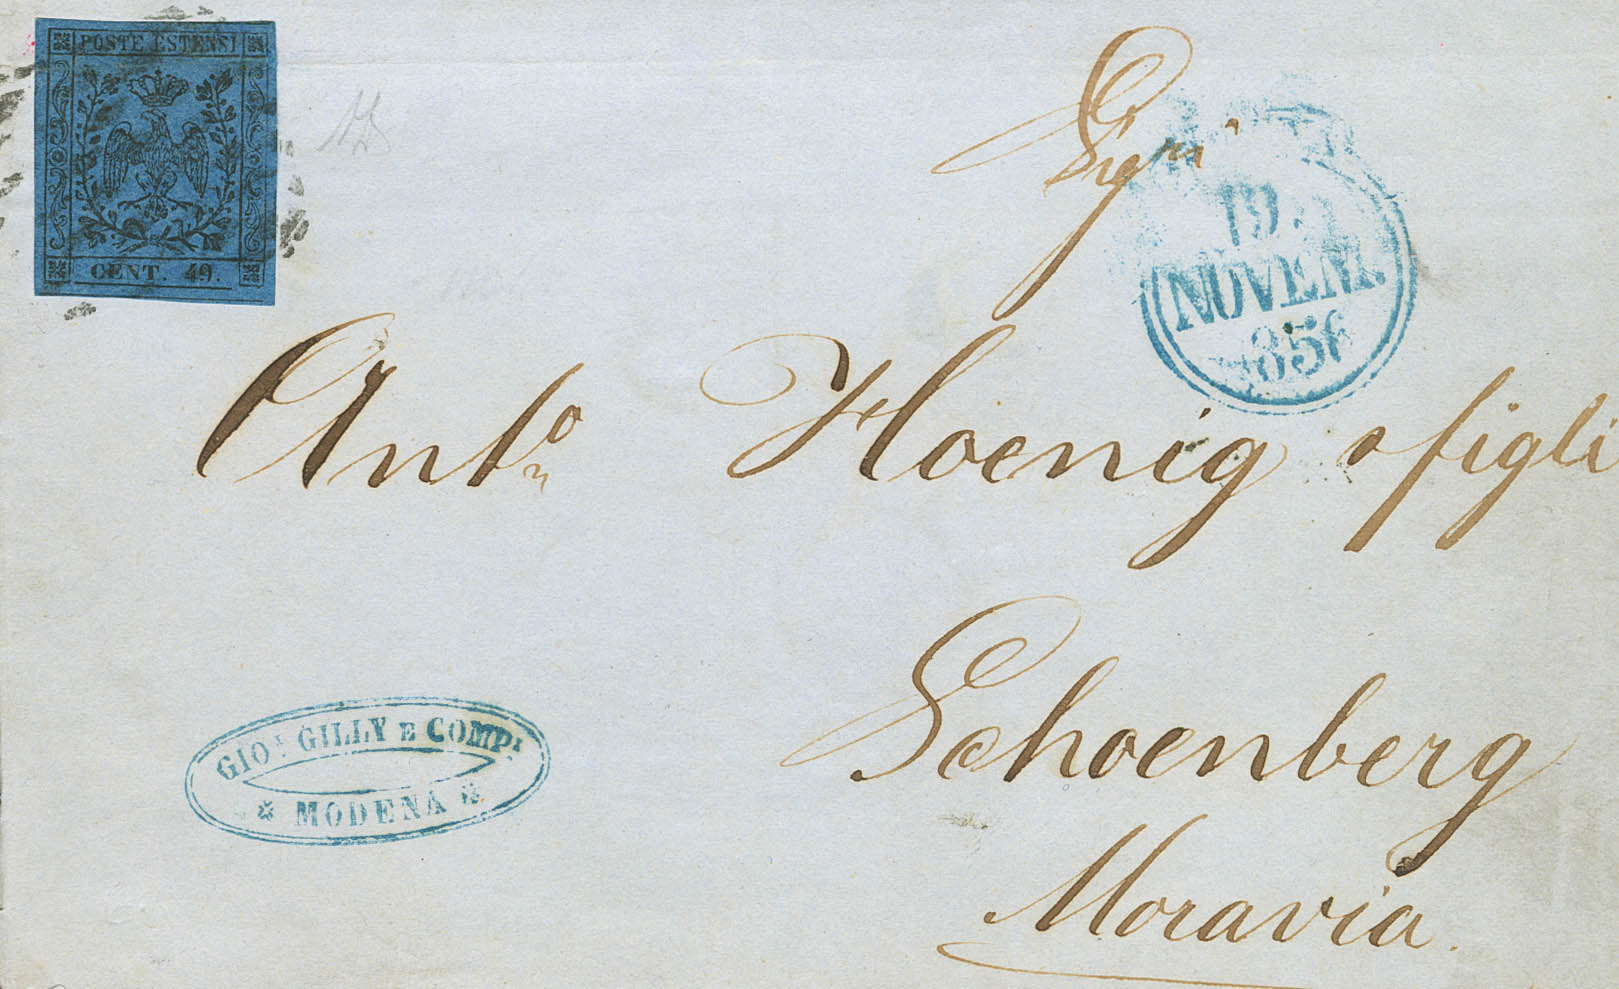 POSTE ESTENSI
CENT. 49.
Sigri
19.
NOVEM.
1856
Anto Hoenig e figli
Schoenberg
Moravia.
GIO.A GILLY E COMP.A
* MODENA *